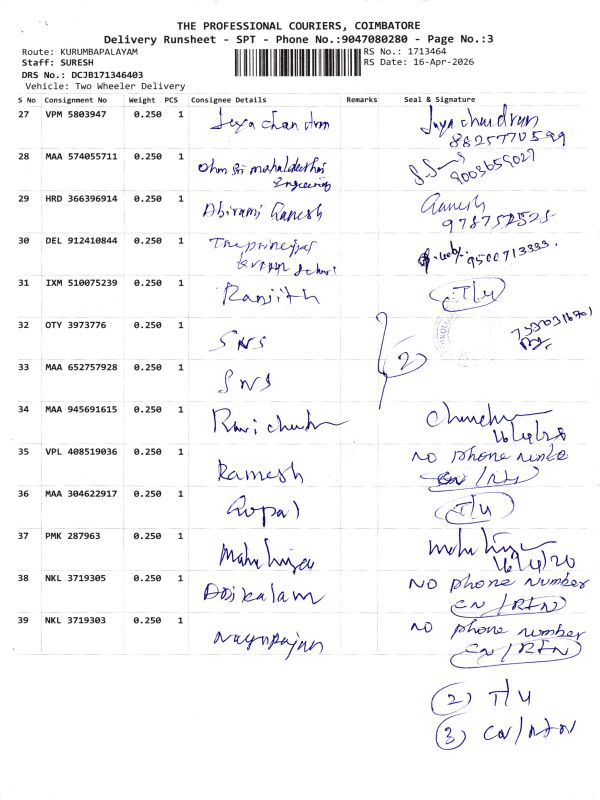 THE PROFESSIONAL COURIERS, COIMBATORE
Delivery Runsheet - SPT - Phone No.:9047080280 - Page No.:3
Route: KURUMBAPALAYAM
RS No.: 1713464
Staff: SURESH
RS Date: 16-Apr-2026
DRS No.: DCJB171346403
Vehicle: Two Wheeler Delivery
S No Consignment No Weight PCS Consignee Details Remarks Seal & Signature
27 VPM 5803947 0.250 1 Jeya Chandran Jaya chandran
8825770599
28 MAA 574055711 0.250 1 Ohm Sri mahalakshmi
Engineering 9003659027
29 HRD 366396914 0.250 1 Abirami Ganesh Ganesh
30 DEL 912410844 0.250 1 The principal 9500713333.
31 IXM 510075239 0.250 1 Ranjith T/U
32 OTY 3973776 0.250 1 SNS
33 MAA 652757928 0.250 1 SNS 2
34 MAA 945691615 0.250 1 Ravi
35 VPL 408519036 0.250 1 Ramesh NO phone
CN/RTN
36 MAA 304622917 0.250 1 Gopal T/U
37 PMK 287963 0.250 1
38 NKL 3719305 0.250 1 Adikalam NO phone number
CN/RTN
39 NKL 3719303 0.250 1 Nagarajan NO phone number
CN/RTN
2) T/U
3) CN/RTN